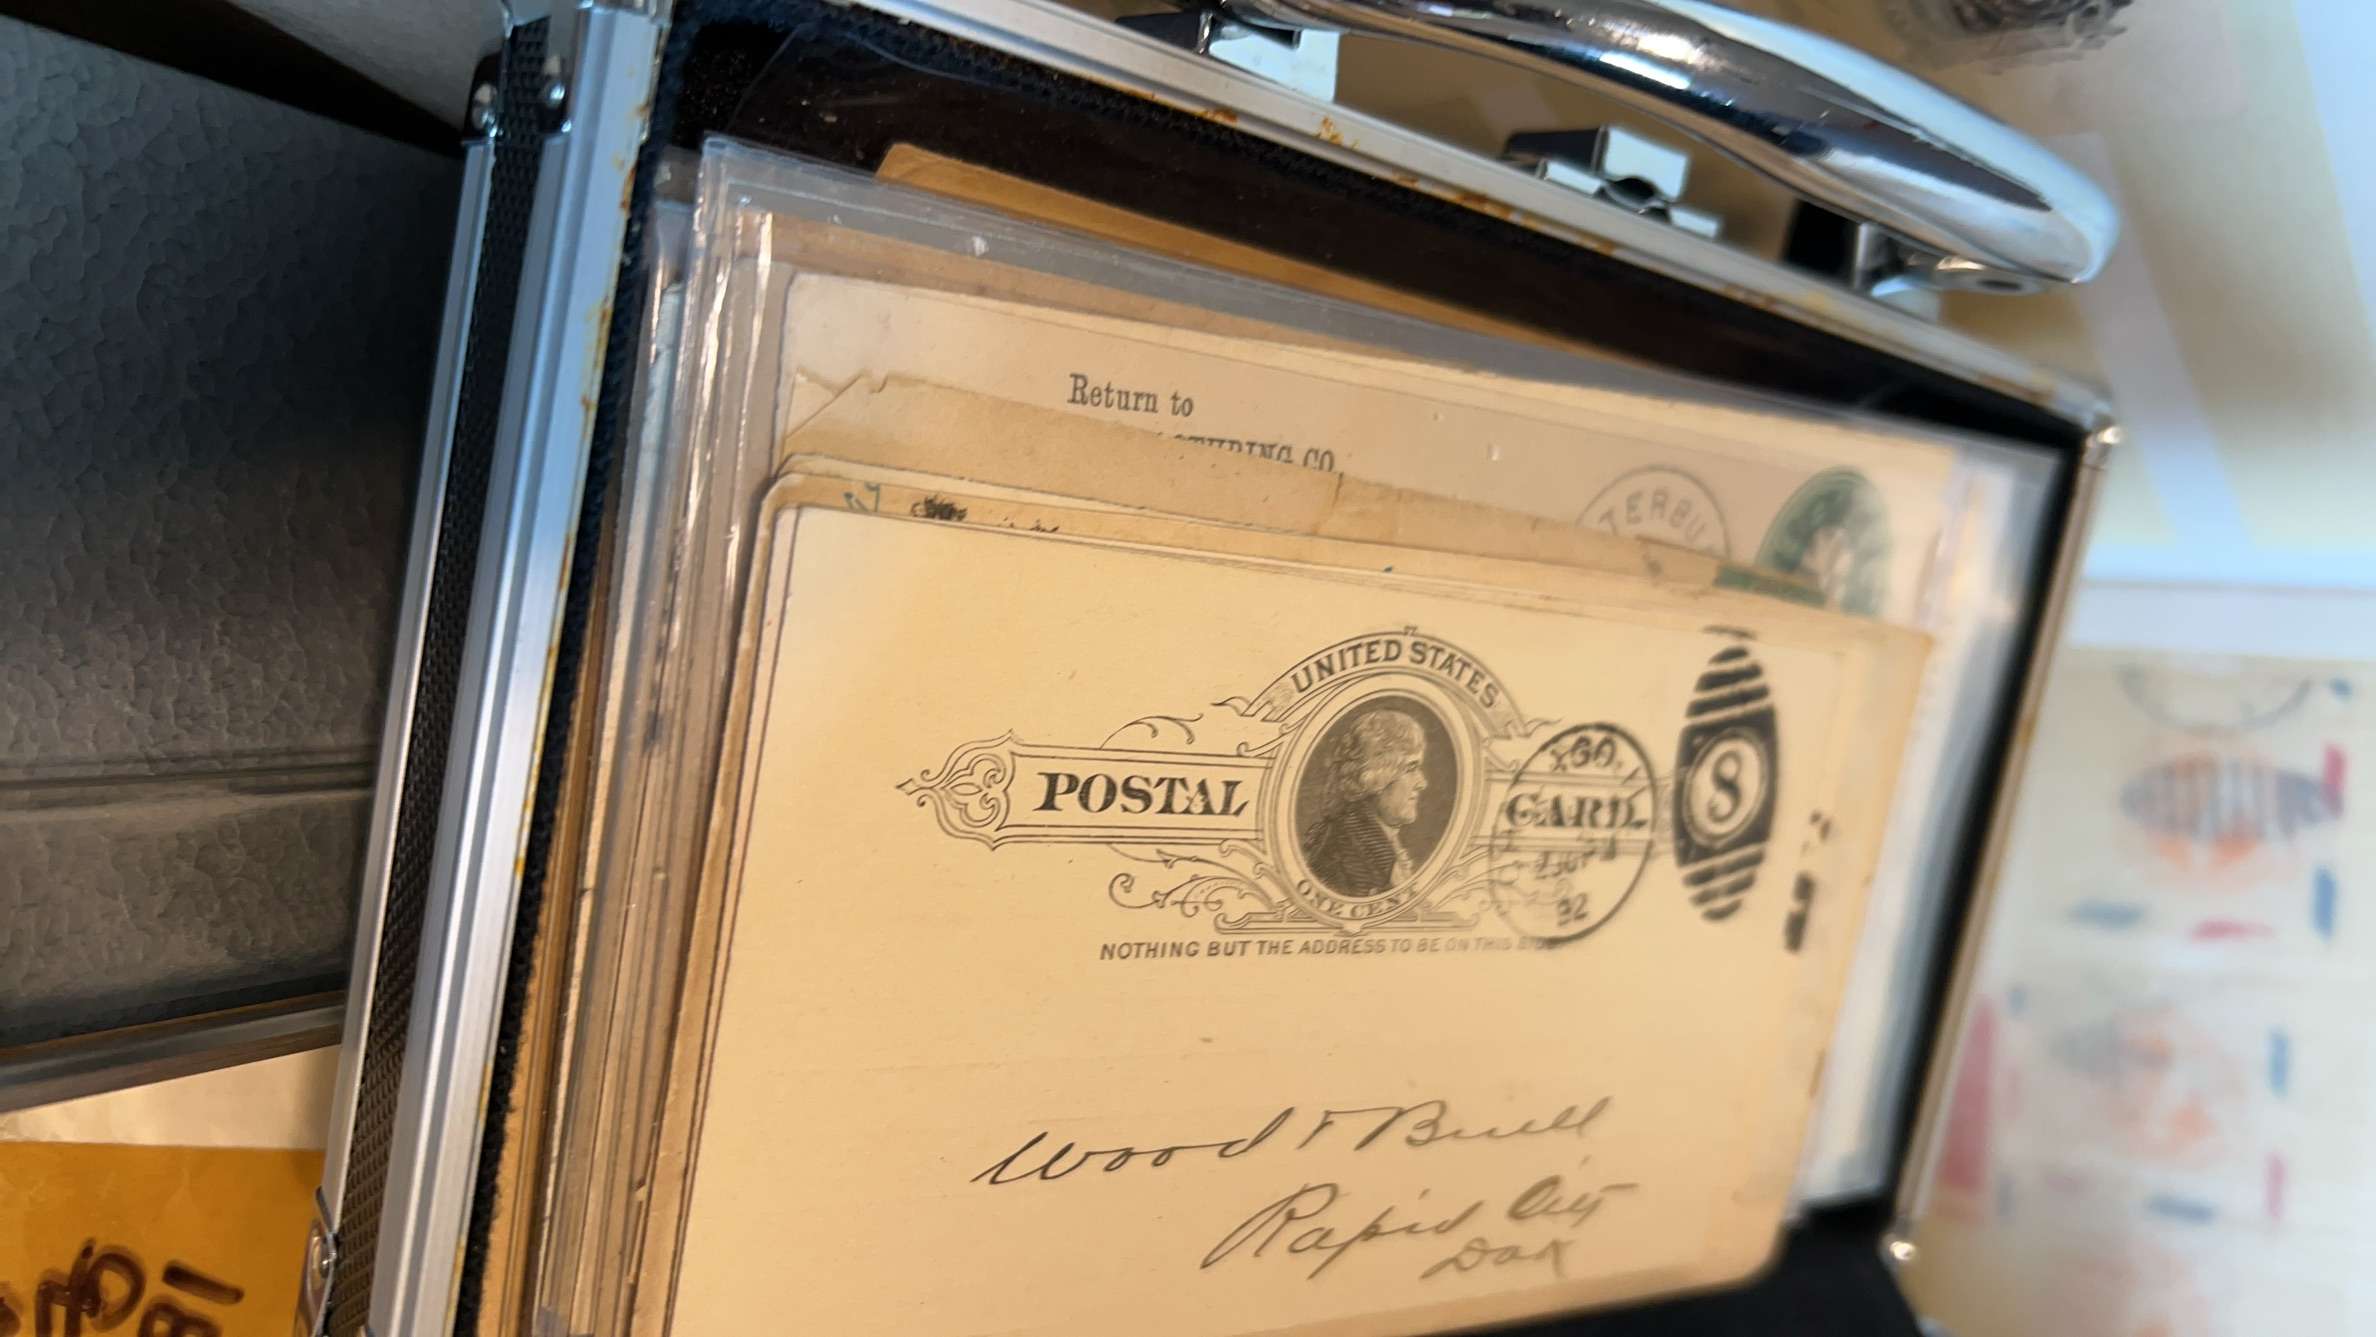 Return to
CO.
TERBU
UNITED STATES
POSTAL CARD.
ONE CENT
NOTHING BUT THE ADDRESS TO BE ON THIS SIDE
8
92
Wood & Buell
Rapid City
Dak